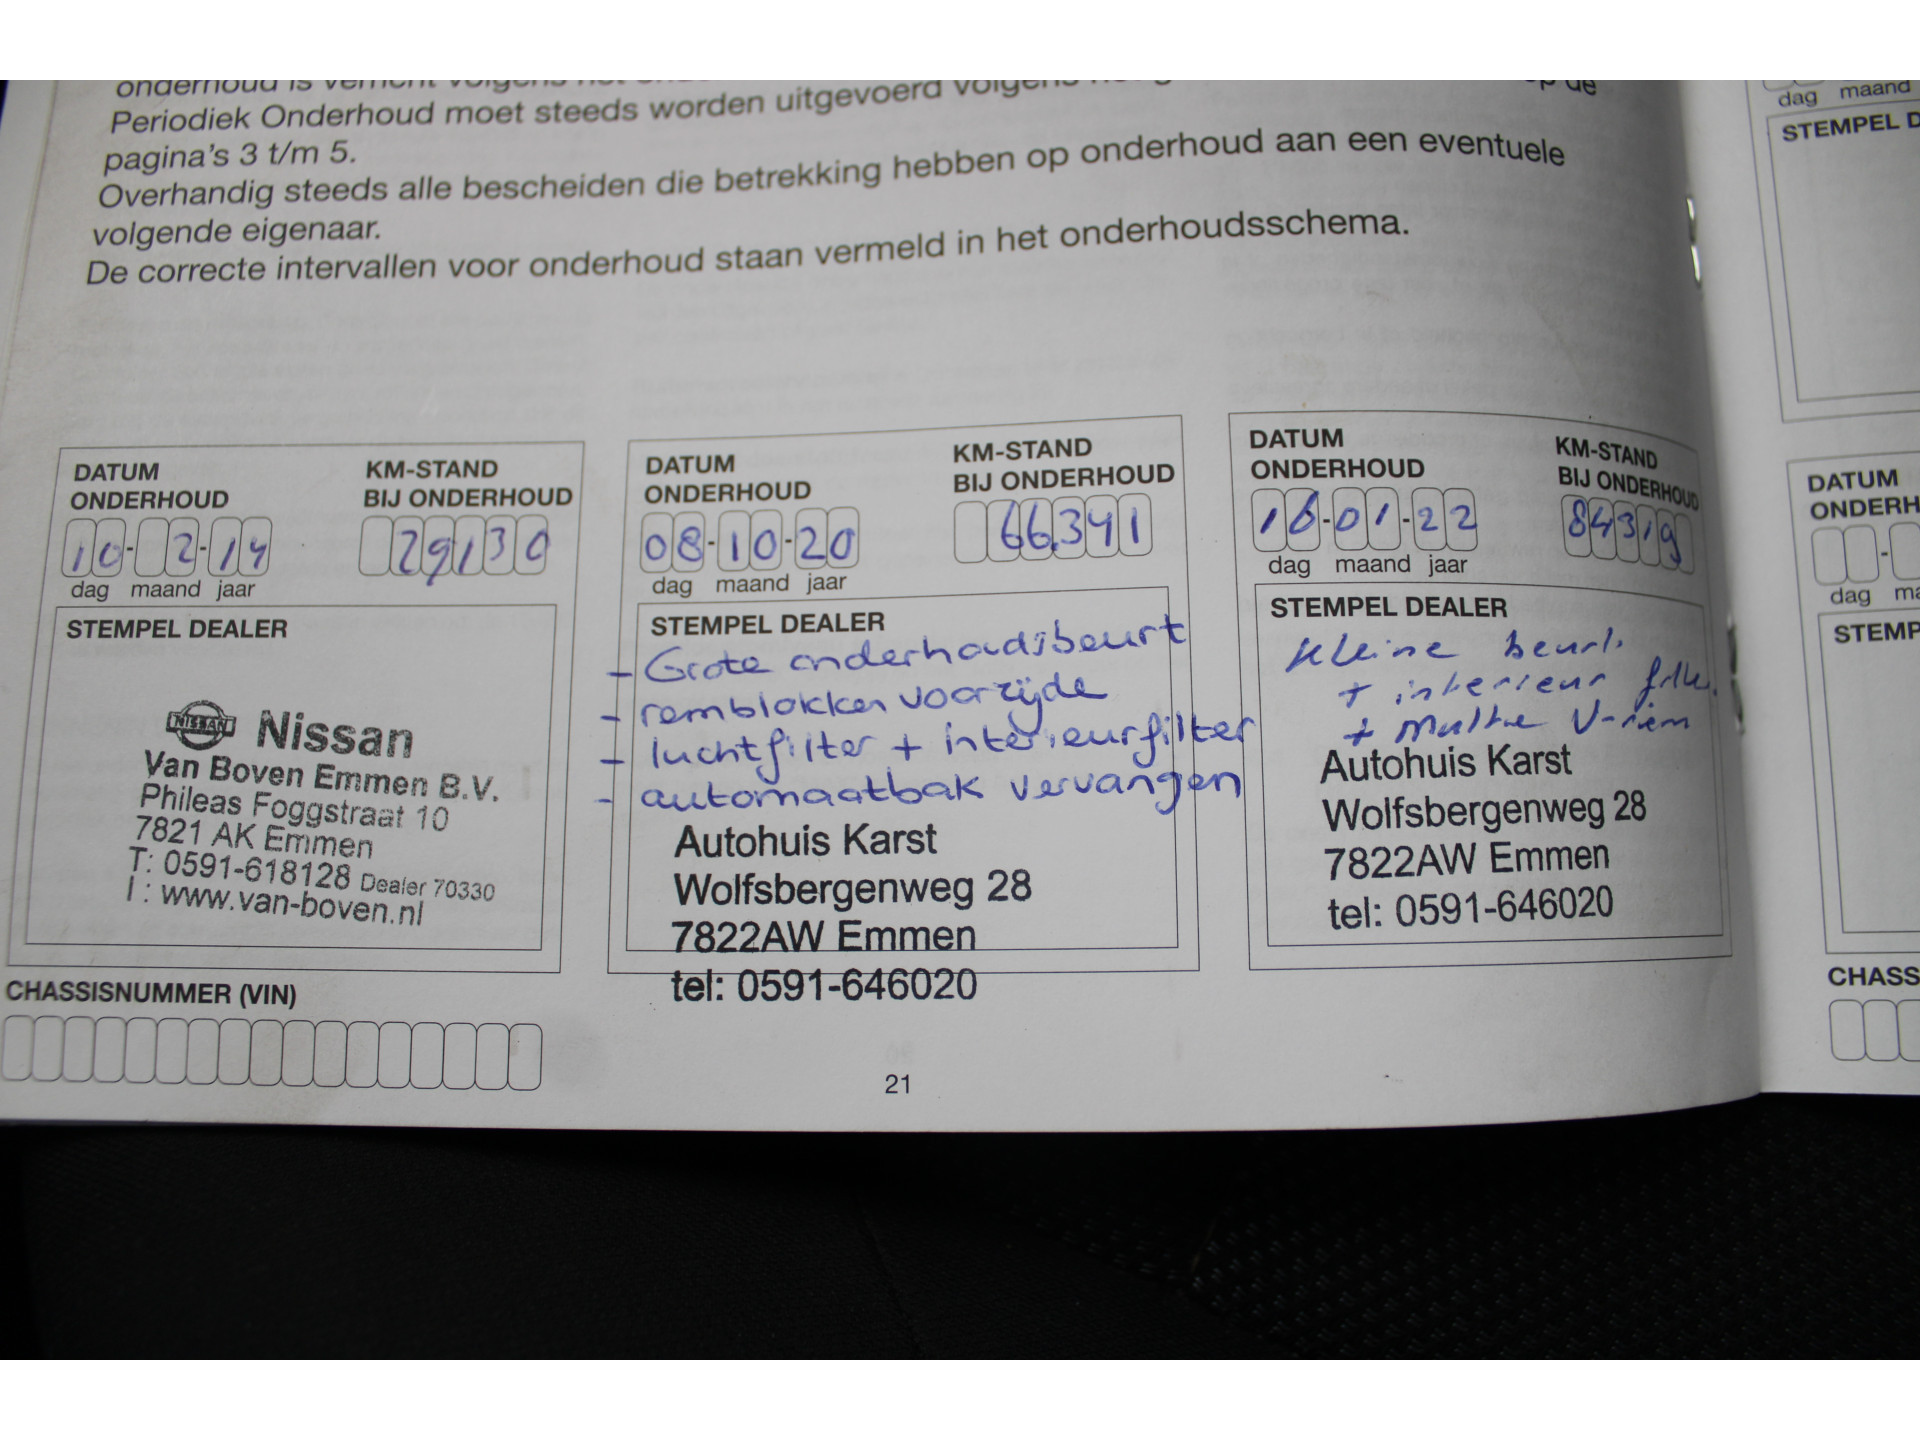 onderhoud is verricht volgens het
Periodiek Onderhoud moet steeds worden uitgevoerd volgens op de
pagina's 3 t/m 5.
Overhandig steeds alle bescheiden die betrekking hebben op onderhoud aan een eventuele
volgende eigenaar.
De correcte intervallen voor onderhoud staan vermeld in het onderhoudsschema.
DATUM
ONDERHOUD
KM-STAND
BIJ ONDERHOUD
10-2-14
29130
dag maand jaar
STEMPEL DEALER
NISSAN Nissan
Van Boven Emmen B.V.
Phileas Foggstraat 10
7821 AK Emmen
T: 0591-618128 Dealer 70330
I : www.van-boven.nl
CHASSISNUMMER (VIN)
DATUM
ONDERHOUD
KM-STAND
BIJ ONDERHOUD
08-10-20
66.341
dag maand jaar
STEMPEL DEALER
- Grote onderhoudsbeurt
- remblokken voorzijde
- luchtfilter + interieurfilter
- automaatbak vervangen
Autohuis Karst
Wolfsbergenweg 28
7822AW Emmen
tel: 0591-646020
DATUM
ONDERHOUD
KM-STAND
BIJ ONDERHOUD
16-01-22
84319
dag maand jaar
STEMPEL DEALER
Kleine beurt.
+ interieur filter.
+ Multie V-riem
Autohuis Karst
Wolfsbergenweg 28
7822AW Emmen
tel: 0591-646020
21
dag maand
STEMPEL D
DATUM
ONDERH
-
dag ma
STEMP
CHASS